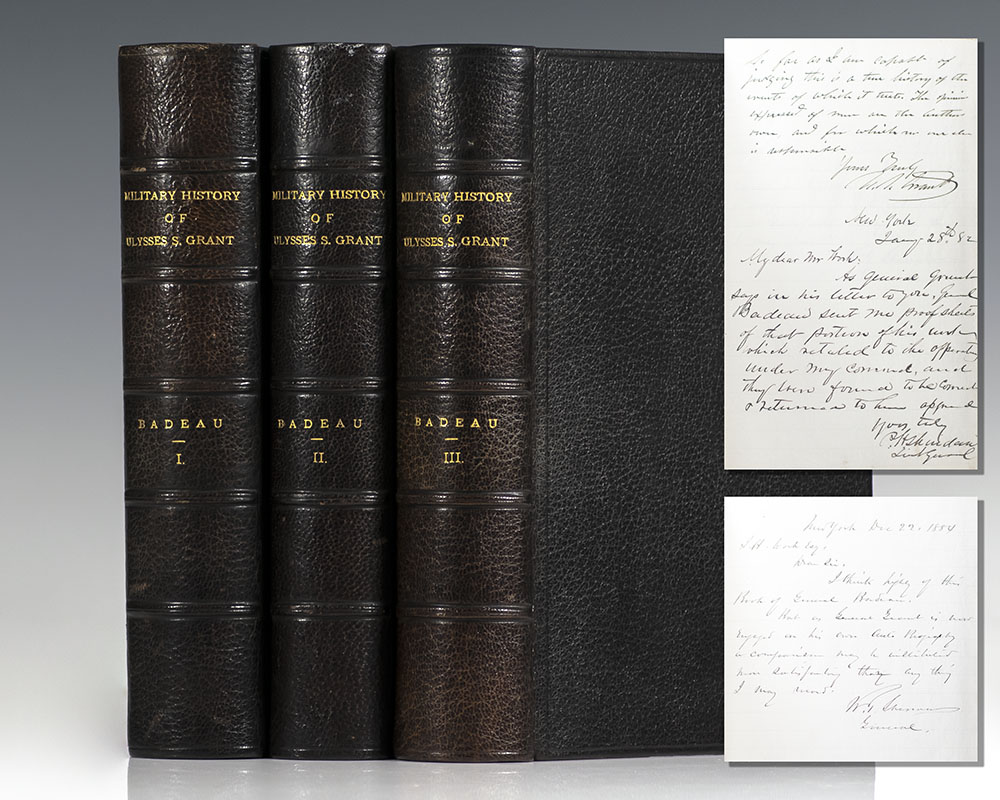 MILITARY HISTORY
OF
ULYSSES S. GRANT
BADEAU
I.
MILITARY HISTORY
OF
ULYSSES S. GRANT
BADEAU
II.
MILITARY HISTORY
OF
ULYSSES S. GRANT
BADEAU
III.
So far as I am capable of
judging this is a true history of the
events of which it treats. The opinions
expressed of men are the author's
own, and for which no one else
is responsible
Yours Truly
U.S. Grant
New York
Jany 28th 82
My dear Mr Work:
As General Grant
says in his letter to you, General
Badeau sent me proof sheets
of that portion of his work
which related to the operations
under my command, and
they were found to be correct
& returned to him approved
Yours truly
P. H. Sheridan
Lieut General
New York Dec 22, 1884
J. H. Work Esq.
Dear Sir,
I think highly of this
Book of General Badeau.
But as General Grant is now
engaged in his own Auto Biography
a comparison may be instituted
more satisfactory than any thing
I may
W. T. Sherman
General.